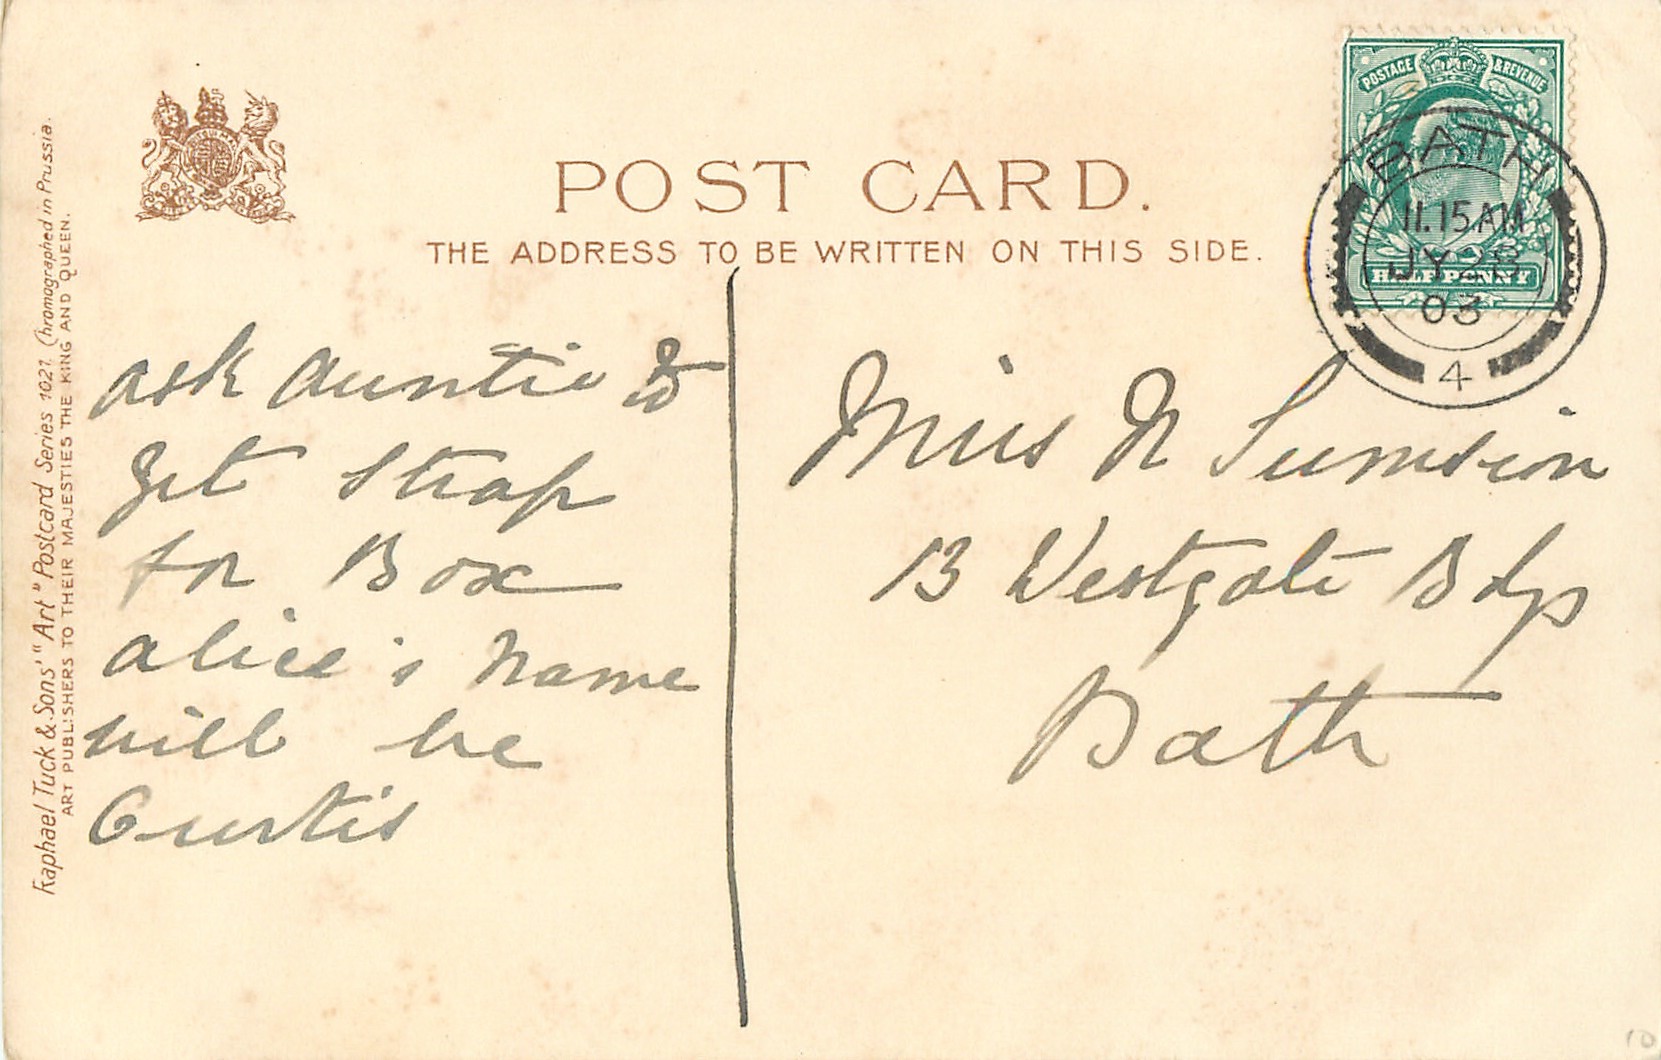 POST CARD.
THE ADDRESS TO BE WRITTEN ON THIS SIDE.
Raphael Tuck & Sons' "Art" Postcard Series 1021. Chromographed in Prussia.
ART PUBLISHERS TO THEIR MAJESTIES THE KING AND QUEEN.
POSTAGE & REVENUE
HALFPENNY
BATH
11.15AM
JY 28
03
4
ask Auntie to
get strap
for Box
alice's name
will be
Curtis
Miss N Sumsion
13 Westgate Bdgs
Bath
10